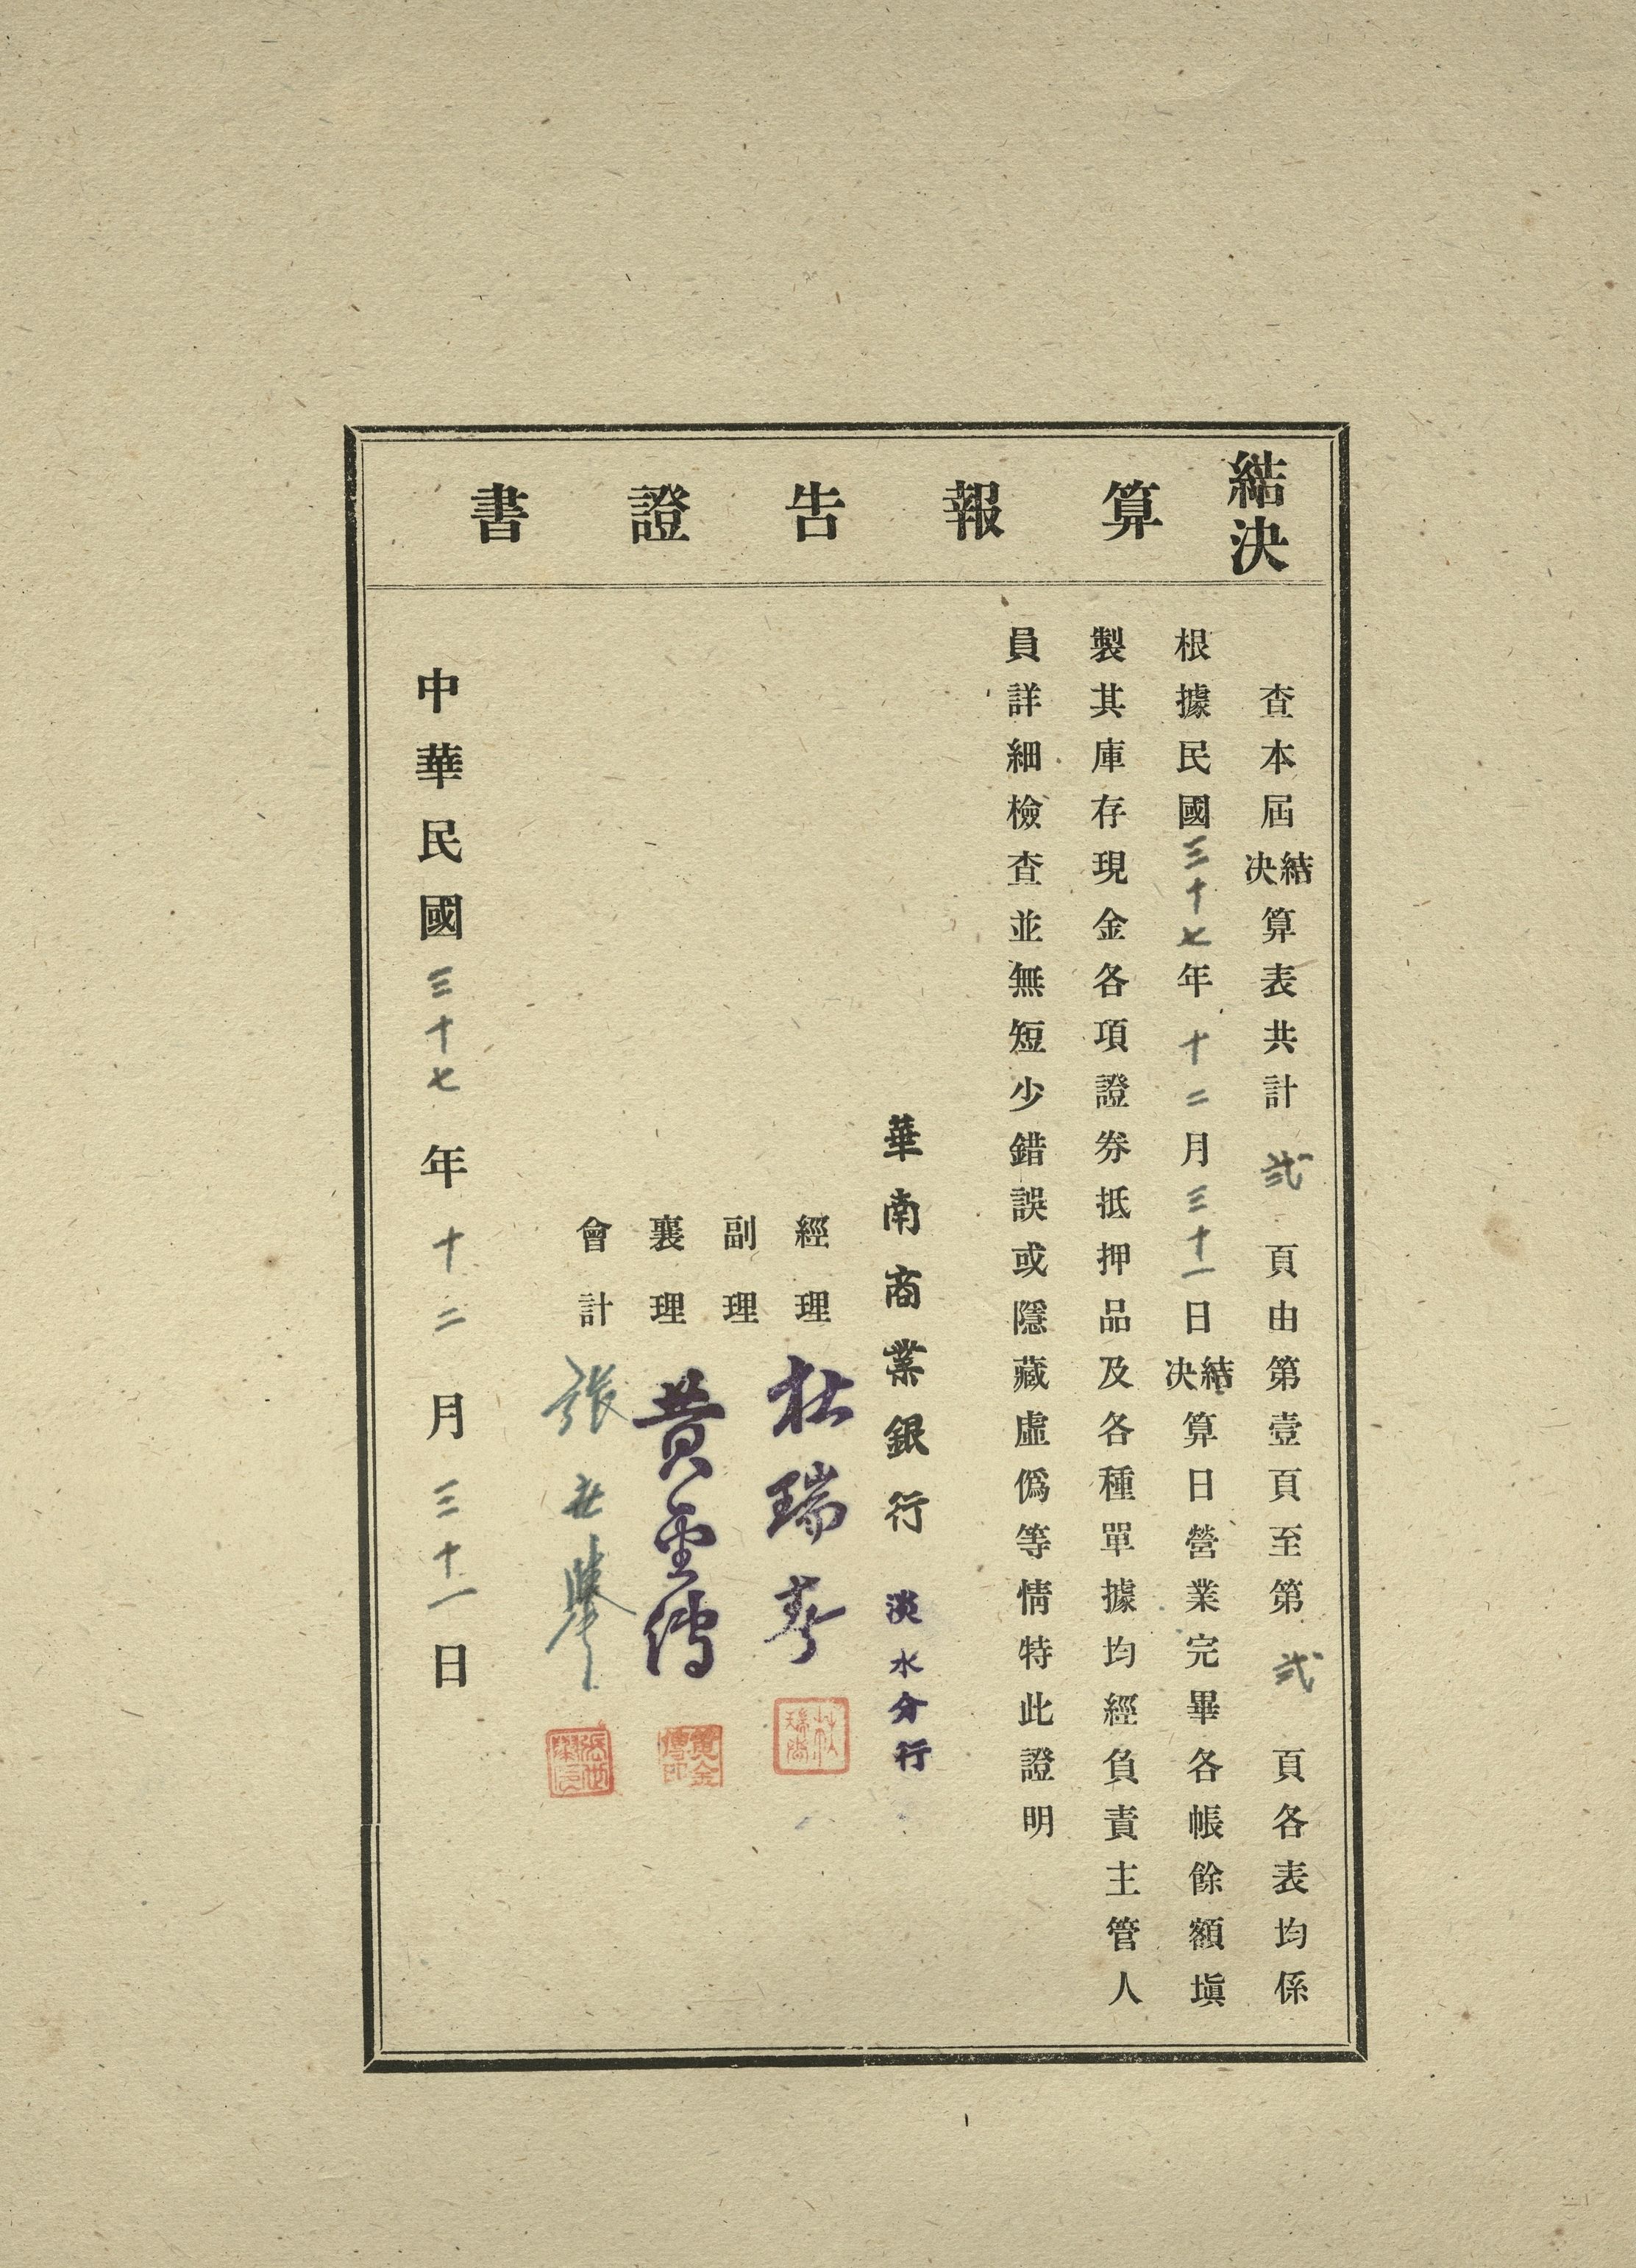 結決算報告證書
查本屆結决算表共計弍頁由第壹頁至第弍頁各表均係
根據民國三十七年十二月三十一日結决算日營業完畢各帳餘額塡
製其庫存現金各項證券抵押品及各種單據均經負責主管人
員詳細檢查並無短少錯誤或隱藏虛僞等情特此證明
華南商業銀行 淡水分行
經理 瑞
副理
襄理 黃金傳 黃金傳印
會計 張世
中華民國三十七年十二月三十一日